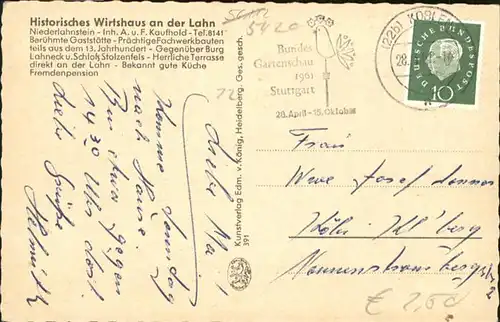 Historisches Wirtshaus an der Lahn
Niederlahnstein - Inh. A. u. F. Kauffold - Tel. 8141
Berühmte Gaststätte - Prächtige Fachwerkbauten
teils aus dem 13. Jahrhundert - Gegenüber Burg
Lahneck u. Schloß Stolzenfels - Herrliche Terrasse
direkt an der Lahn - Bekannt gute Küche
Fremdenpension
5420
72
Liebe
Komme Sonntag
nach Hause.
Bin etwa gegen
14.30 Uhr dort.
Grüße
Helmut
Kunstverlag Edm. v. König, Heidelberg. Ges. gesch.
391
Bundes
Gartenschau
1961
Stuttgart
28. April - 15. Oktober
(22b) KOBLENZ
28.
DEUTSCHE BUNDESPOST
10
Frau
Josef
Köln
€ 2,50